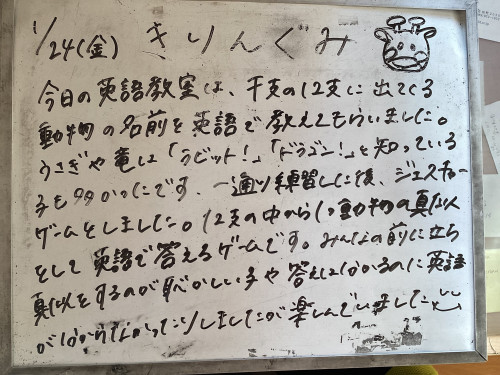 1/24(金) きりんぐみ
今日の英語教室は、干支の12支に出てくる
動物の名前を英語で教えてもらいました。
うさぎや竜は「ラビット!」「ドラゴン!」と知っている
子も多かったです。一通り練習した後、ジェスチャー
ゲームをしました。12支の中から1つ動物の真似
をして英語で答えるゲームです。みんなの前に立ち
真似をするのが恥かしい子や答えはわかるのに英語
がわからなかったりしましたが楽しんでいました